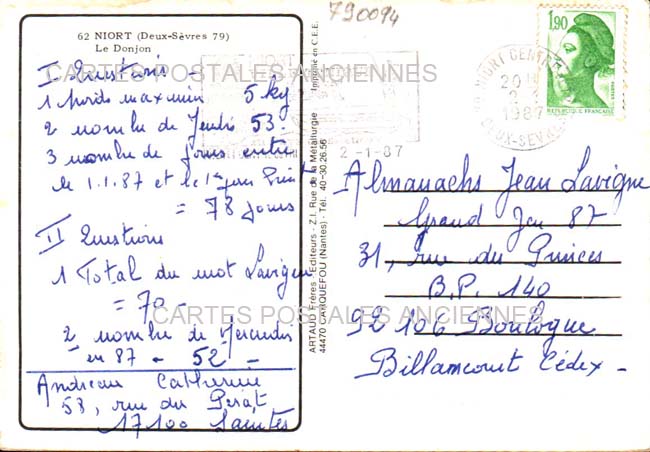 790094
62 NIORT (Deux-Sèvres 79)
Le Donjon
I Questions -
1 Poids maximin 5 kg
2 nombre de Jeudis 53.
3 nombre de jours entre
le 1.1.87 et le 1er jour Print
= 78 jours
II Questions
1 Total du mot Lavigne
= 70 -
2 nombre de Mercredis
en 87 - 52 -
Andreau Catherine
58, rue du Pérat
17100 Saintes
ARTAUD Frères - Editeurs - Z.I. Rue de la Métallurgie Imprimé en C.E.E.
44470 CARQUEFOU (Nantes) - Tél: 40-30-26-56
1,90
REPUBLIQUE FRANÇAISE
NIORT CENTRE
20 H
2-1
1987
DEUX-SEVRES
2-1-87
Almanachs Jean Lavigne
Grand Jeu 87
31, rue du Princes
B.P. 140
92 106 Boulogne
Billamcourt Cédex -
CARTES POSTALES ANCIENNES
CARTES POSTALES ANCIENNES